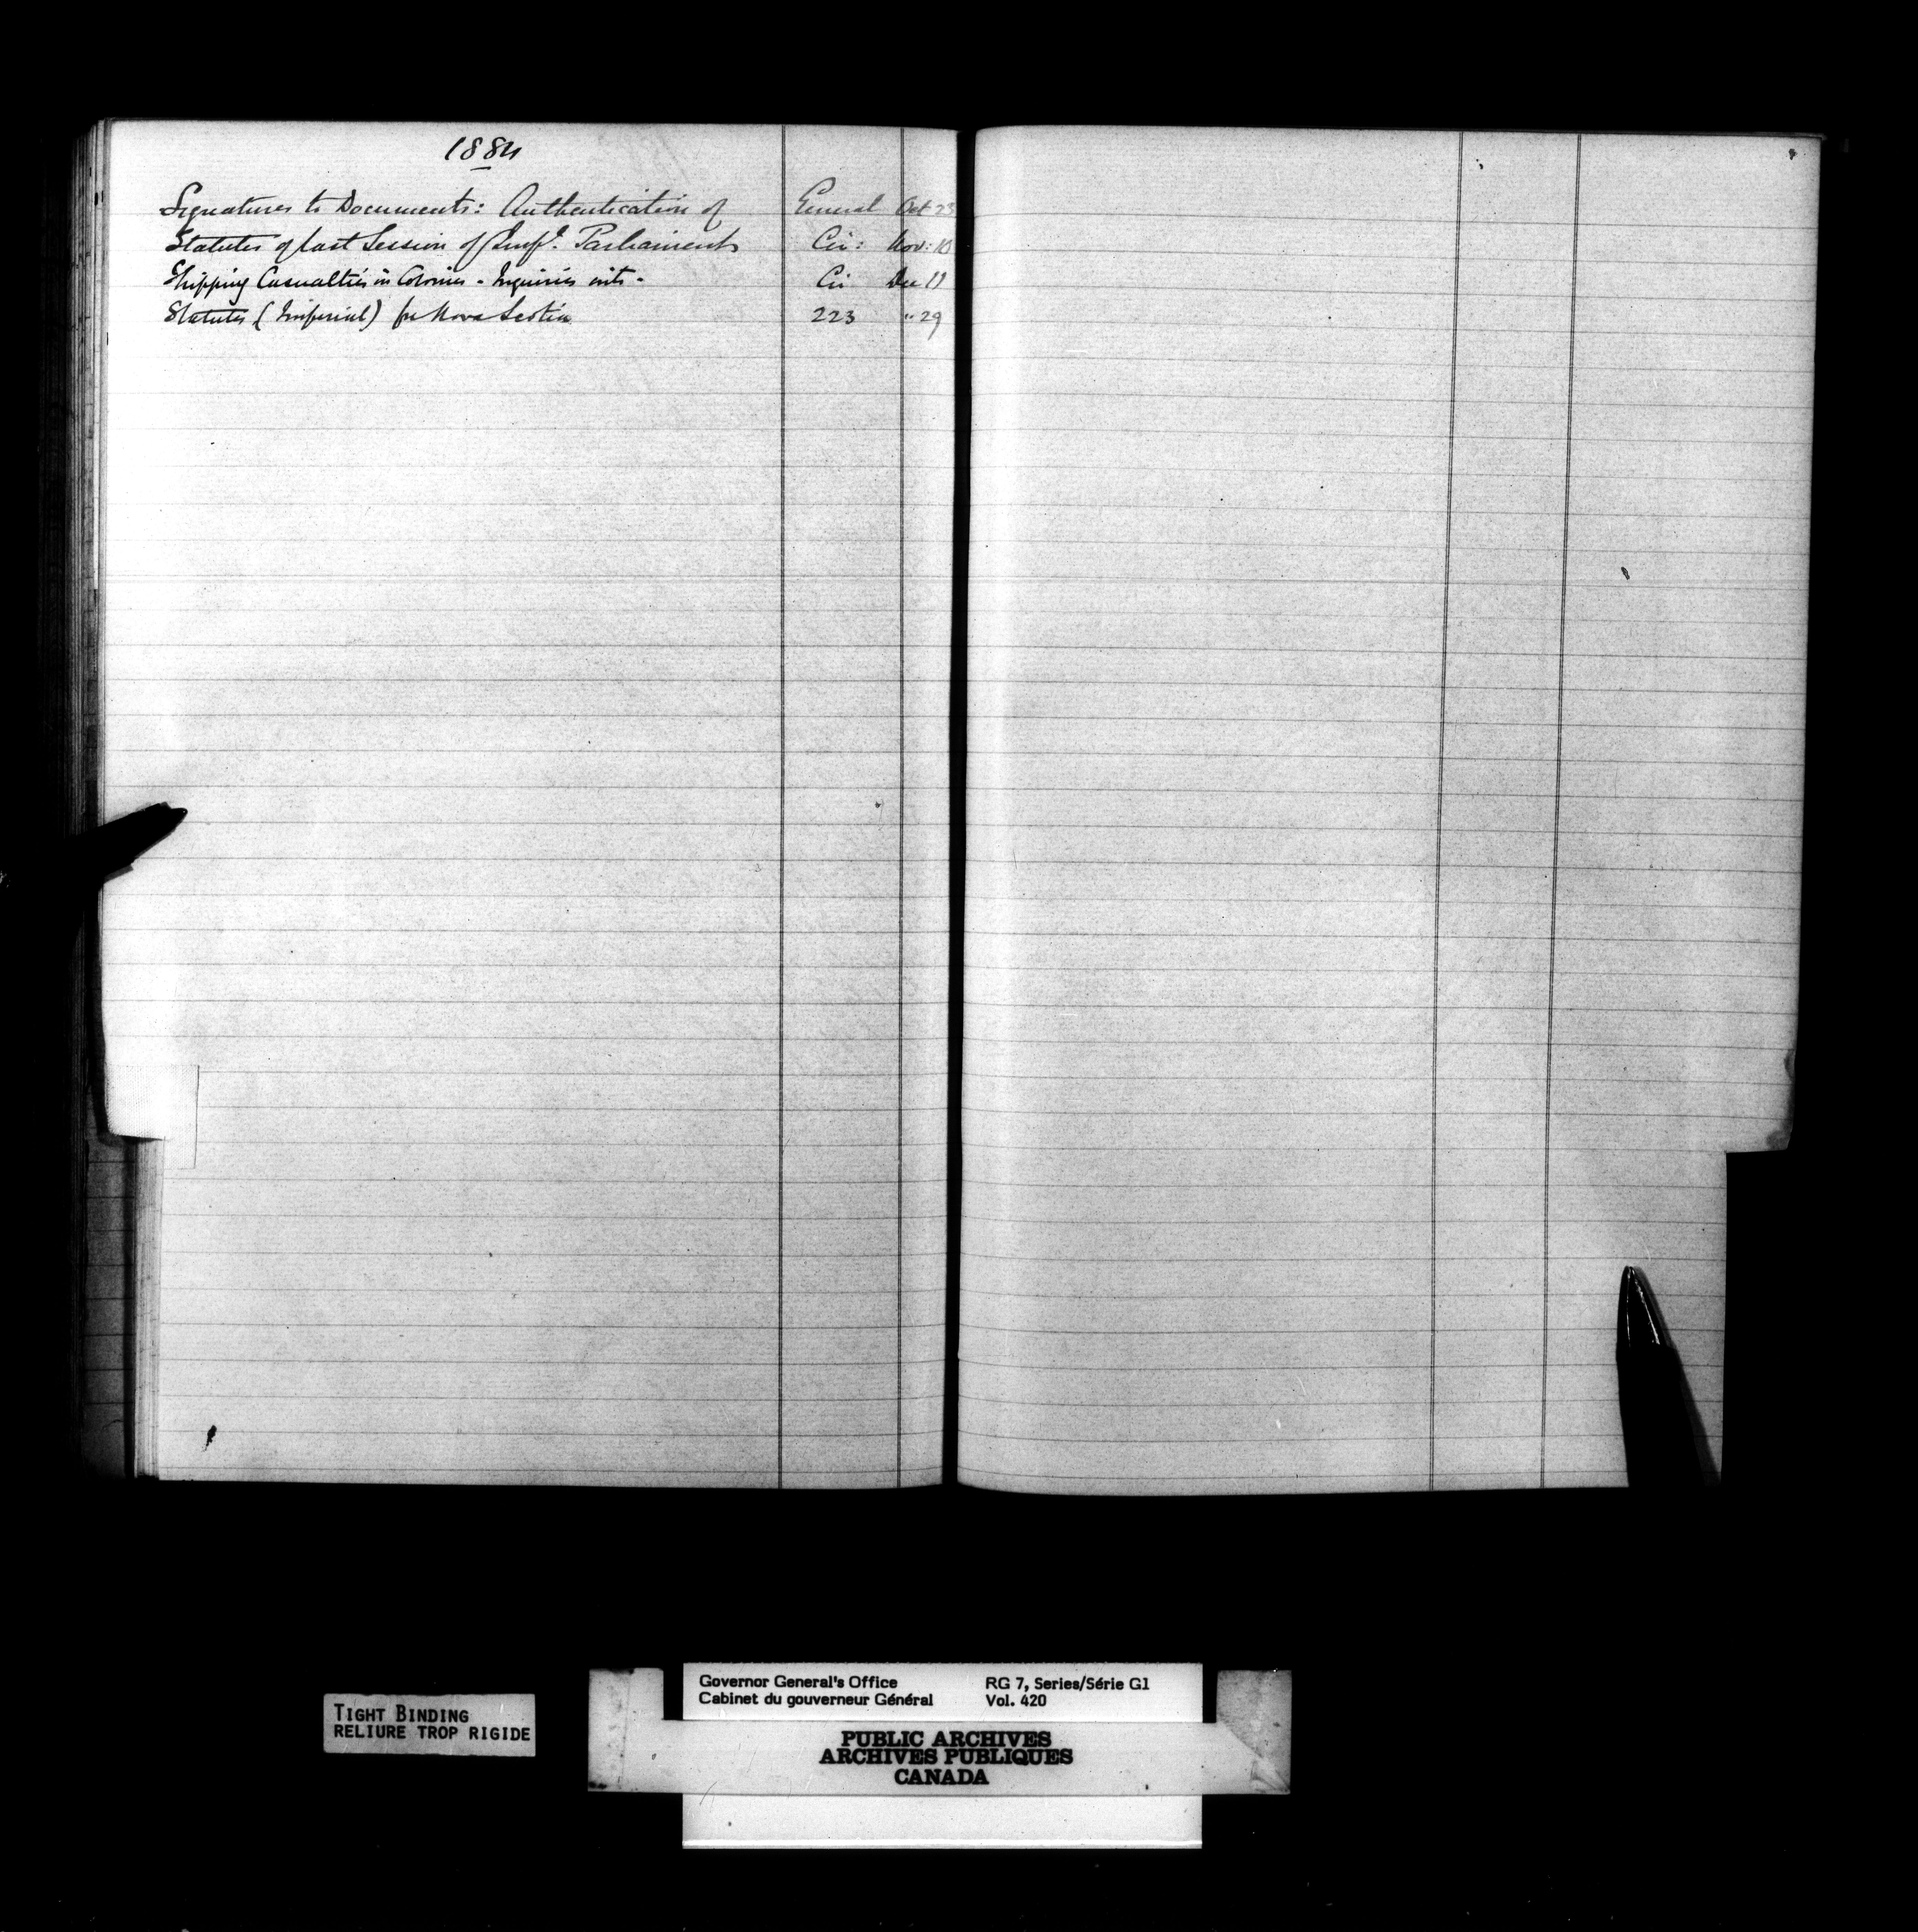 1884
Signatures to Documents: Authentication of General Oct 23
Statutes of last Session of Impl. Parliament Cir: Nov: 10
Shipping Casualties in Colonies - Inquiries into - Cir Dec 11
Statutes (Imperial) for Nova Scotia 223 " 29
TIGHT BINDING
RELIURE TROP RIGIDE
Governor General's Office RG 7, Series/Série G1
Cabinet du gouverneur Général Vol. 420
PUBLIC ARCHIVES
ARCHIVES PUBLIQUES
CANADA